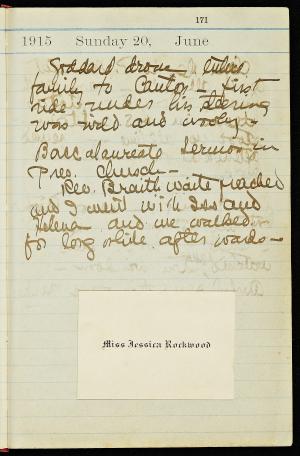 171
1915 Sunday 20, June
Goddard drove entire
family to Canton - first
ride under his steering
was wild and wooley -
Baccalaureate Sermon in
Pres. Church -
Rev. Braithwaite preached
and I went with Iss and
Helena and we walked
for long while after wards -
Miss Jessica Rockwood